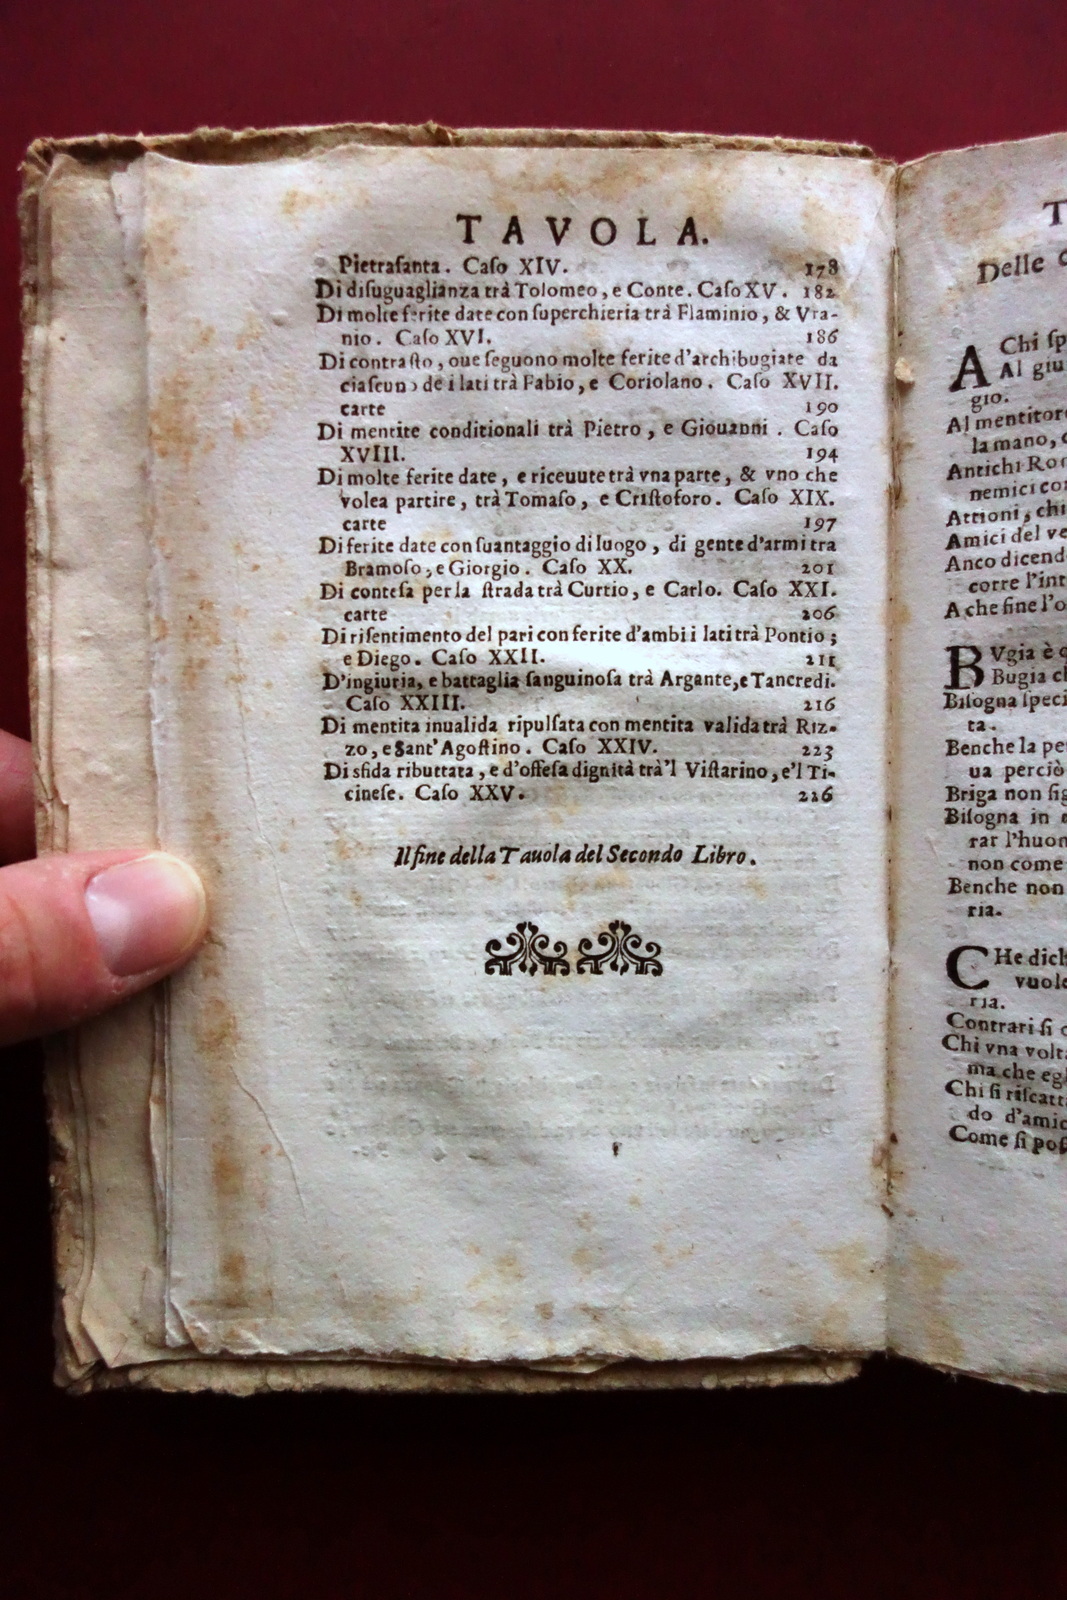 TAVOLA.
Pietraſanta. Caſo XIV. 178
Di diſuguaglianza trà Tolomeo, e Conte. Caſo XV. 182
Di molte ferite date con ſuperchieria trà Flaminio, & Vra-
nio. Caſo XVI. 186
Di contraſto, oue ſeguono molte ferite d'archibugiate da
ciaſcuno de i lati trà Fabio, e Coriolano. Caſo XVII.
carte 190
Di mentite conditionali trà Pietro, e Giouanni. Caſo
XVIII. 194
Di molte ferite date, e riceuute trà vna parte, & vno che
volea partire, trà Tomaſo, e Criſtoforo. Caſo XIX.
carte 197
Di ferite date con ſuantaggio di luogo, di gente d'armi tra
Bramoſo, e Giorgio. Caſo XX. 201
Di conteſa per la ſtrada trà Curtio, e Carlo. Caſo XXI.
carte 206
Di riſentimento del pari con ferite d'ambi i lati trà Pontio;
e Diego. Caſo XXII. 211
D'ingiuria, e battaglia ſanguinoſa trà Argante, e Tancredi.
Caſo XXIII. 216
Di mentita inualida ripulſata con mentita valida trà Riz-
zo, e Sant' Agoſtino. Caſo XXIV. 223
Di sfida ributtata, e d'offeſa dignità trà'l Viſtarino, e'l Ti-
cineſe. Caſo XXV. 226
Il fine della Tauola del Secondo Libro.
T
Delle
A Chi ſp
Al giu
gio.
Al mentitor
la mano,
Antichi Ro
nemici co
Attioni, chi
Amici del ve
Anco dicend
corre l'int
A che fine l'o
BVgia è
Bugia c
Biſogna ſpeci
ta.
Benche la pe
ua perciò
Briga non ſig
Biſogna in
rar l'huo
non come
Benche non
ria.
CHe dich
vuole
ria.
Contrari ſi
Chi vna volt
ma che eg
Chi ſi riſcatt
do d'amic
Come ſi poſ